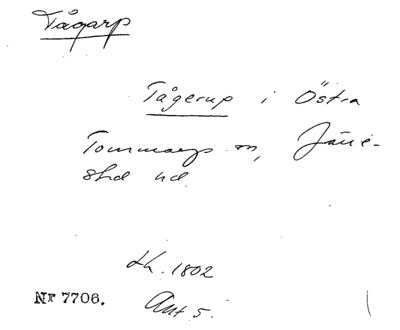 Tågarp
Tågerup i Östra
Tommarps sn, Järre-
stad hd.
Lh. 1802
Nr 7706. Ant 5.